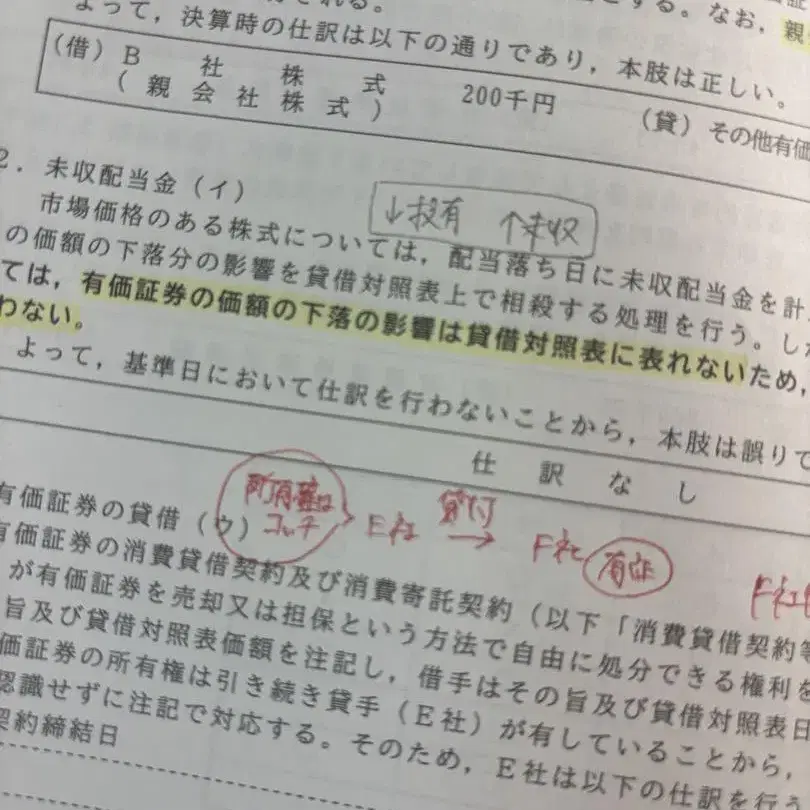 よって，決算時の仕訳は以下の通りであり，本肢は正しい。
する。なお，親
（借）B 社 株 式 200千円 （貸）その他有価
（親会社株式）
2．未収配当金（イ）
↓投有 ↑未収
市場価格のある株式については，配当落ち日に未収配当金を計
の価額の下落分の影響を貸借対照表上で相殺する処理を行う。した
ては，有価証券の価額の下落の影響は貸借対照表に表れないため，
わない。
よって，基準日において仕訳を行わないことから，本肢は誤りで
仕 訳 な し
所有権は
コッチ
E社 貸付→ F社 有証
F社
有価証券の貸借（ウ）
有価証券の消費貸借契約及び消費寄託契約（以下「消費貸借契約等
が有価証券を売却又は担保という方法で自由に処分できる権利を
旨及び貸借対照表価額を注記し，借手はその旨及び貸借対照表日
価証券の所有権は引き続き貸手（E社）が有していることから，
認識せずに注記で対応する。そのため，E社は以下の仕訳を行う
契約締結日